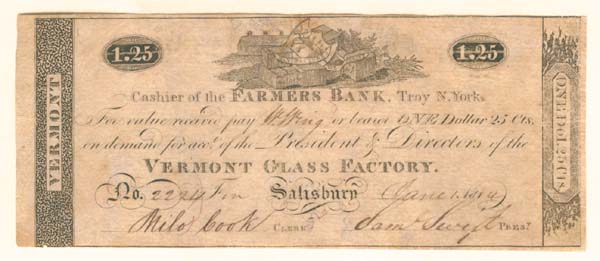 1.25 1.25
VERMONT
Cashier of the FARMERS BANK, Troy N. York.
For value receiv'd pay or bearer ONE Dollar 25 Cts.
on demand for acct. of the President & Directors of the
VERMONT GLASS FACTORY.
No. 2294 Salisbury June 1. 1814
Milo Cook CLERK Saml. Swift PREST
ONE DOL. 25 CTS